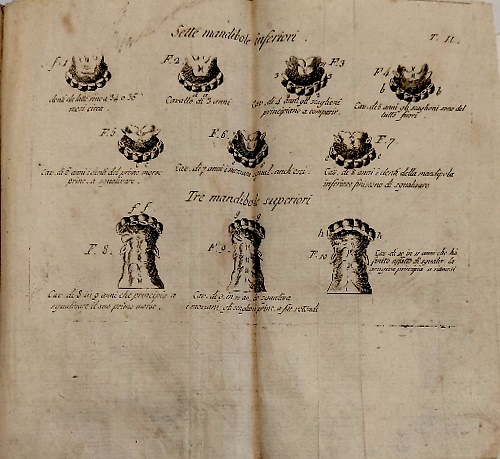 Sette mandibole inferiori.
T. II.
f. 1
denti di latte sino a 34 o 36
mesi circa.
F. 2
a a
Cavallo di 3 anni
F. 3
3 3
Cav. di 4 anni gli scaglioni
principiano a comparir.
F. 4
b b
Cav. di 5 anni gli scaglioni sono del
tutto fuori
F. 5
c c
Cav. di 6 anni i denti del primo morso
princ. a egualirare.
F. 6
Cav. di 7 anni i mezani equal. anch'essi.
F. 7
e e
Cav. di 8 anni i denti della mandipola
inferiore finiscono di egualirare
Tre mandibole superiori
f f
F. 8.
Cav. di 8 in 9 anni che principia a
egualirare il suo primo morso.
g g
F. 9
Cav. di 9 in 10 an. egualira
i mezani, gli scaglioni princ. a far rotondi
h h
F. 10
Cav. di 10 in 11 anni che ha
finito affatto di egualir. la
principia a